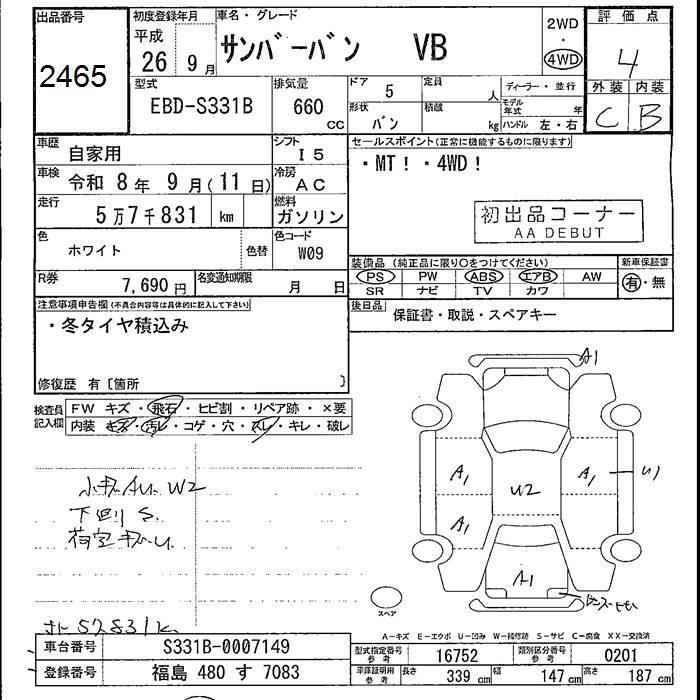 出品番号
2465
初度登録年月
平成
26 9月
車名・グレード
サンバーバン VB
2WD
・
4WD
評価点
4
外装 内装
C B
型式
EBD-S331B
排気量
660 cc
ドア
5
定員
人
形状
バン
積載
kg
ディーラー・並行
モデル年式 年
ハンドル 左・右
車歴
自家用
シフト
I5
車検
令和 8年 9月(11日)
冷房
AC
走行
5万7千831 km
燃料
ガソリン
色
ホワイト
色替
色コード
W09
R券
7,690円
名変通知期限
月 日
セールスポイント(正常に機能するものに限ります)
・MT!・4WD!
初出品コーナー
AA DEBUT
装備品(純正品に限り○をつけてください)
PS PW ABS エアB AW
SR ナビ TV カワ
新車保証書
有・無
後日品
保証書・取説・スペアキー
注意事項申告欄(不具合内容等は具体的に記入して下さい)
・冬タイヤ積込み
修復歴 有〔箇所 〕
検査員記入欄
FW キズ・飛石・ヒビ割・リペア跡・×要
内装 キズ・汚レ・コゲ・穴・スレ・キレ・破レ
小キズA.U. W2
下回りS.
荷室キズU
57831k
A1
A1
A1
U2
A1
U1
A1
スペア
A-キズ E-エクボ U-凹み W-補修跡 S-サビ C-腐食 XX-交換済
車台番号
S331B-0007149
登録番号
福島 480 す 7083
型式指定番号
参考
16752
類別区分番号
参考
0201
車庫証明用
参考
長さ 339 cm 幅 147 cm 高さ 187 cm